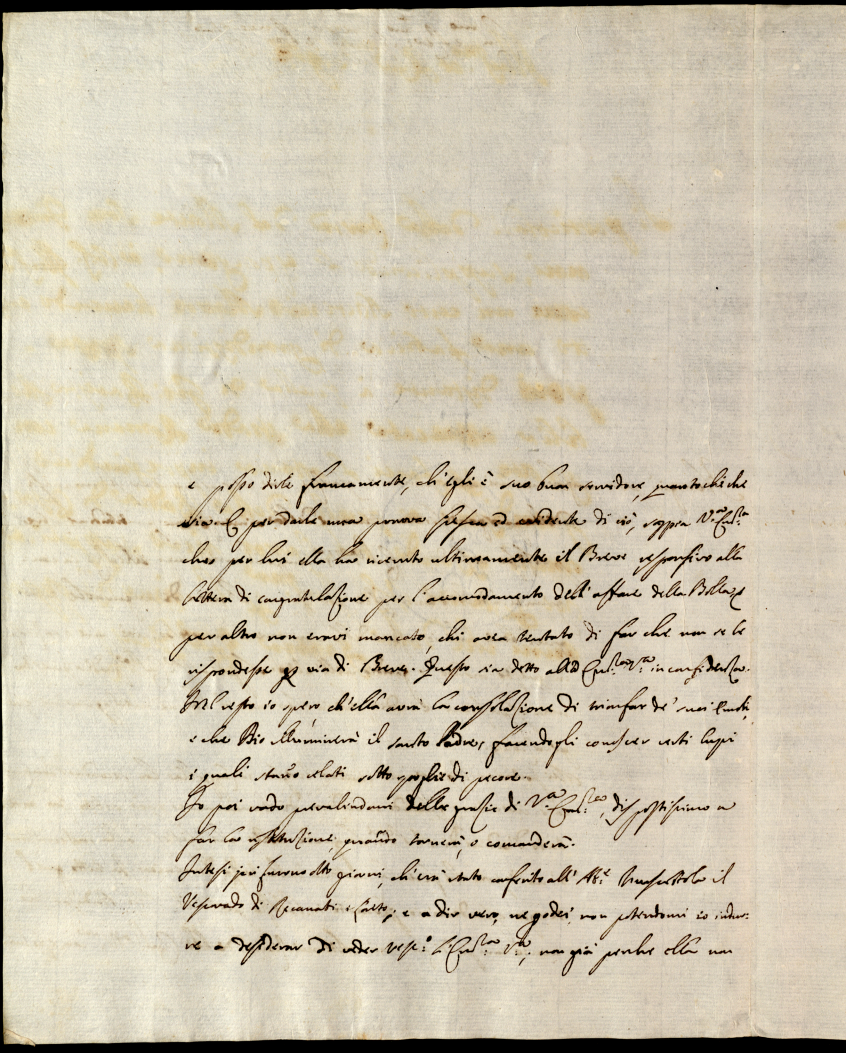 e posso dirle francamente, ch'egli è suo buon servidore, quantoché che
sia. E per darle una pruova fresca ed evidente di ciò, sappia V.ra Em.za
che per lui ella ha ricevuto ultimamente il Breve responsivo alla
lettera di congratulazione per l'accomodamento dell'affare della Bolla, e
per altro non eravi mancato, chi avea tentato di far che non se le
rispondesse per via di Breve. Questo sia detto all' Em.za V.ra in confidenza.
Nel resto io spero ch'ella avrà la consolazione di trionfar de' suoi
e che Dio illuminerà il santo Padre, facendogli conoscer certi lupi
i quali stanno celati sotto spoglie di pecore.
Io poi vado prevalendomi delle grazie di V.ra Em.za, dispostissimo a
far la restituzione, quando tornerà, o comanderà.
Intesi jeri furono otto giorni, ch'era stato conferito all' Ab.e il
Vescovado di Recanati e Loreto; e a dir vero, ne godei, non potendomi io indur-
re a desiderar di veder Vesc.o l'Em.za V.ra, non già perché ella non